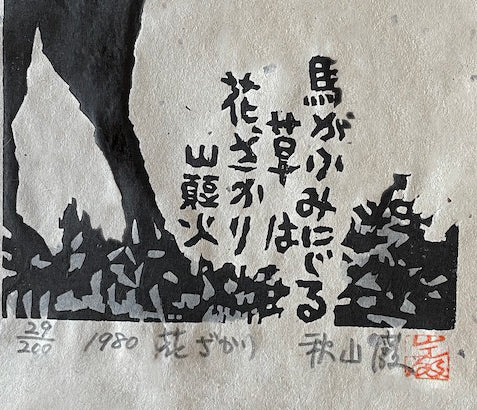 馬がふみにじる
草は
花ざかり
山頭火
29/200 1980 花ざかり 秋山巌